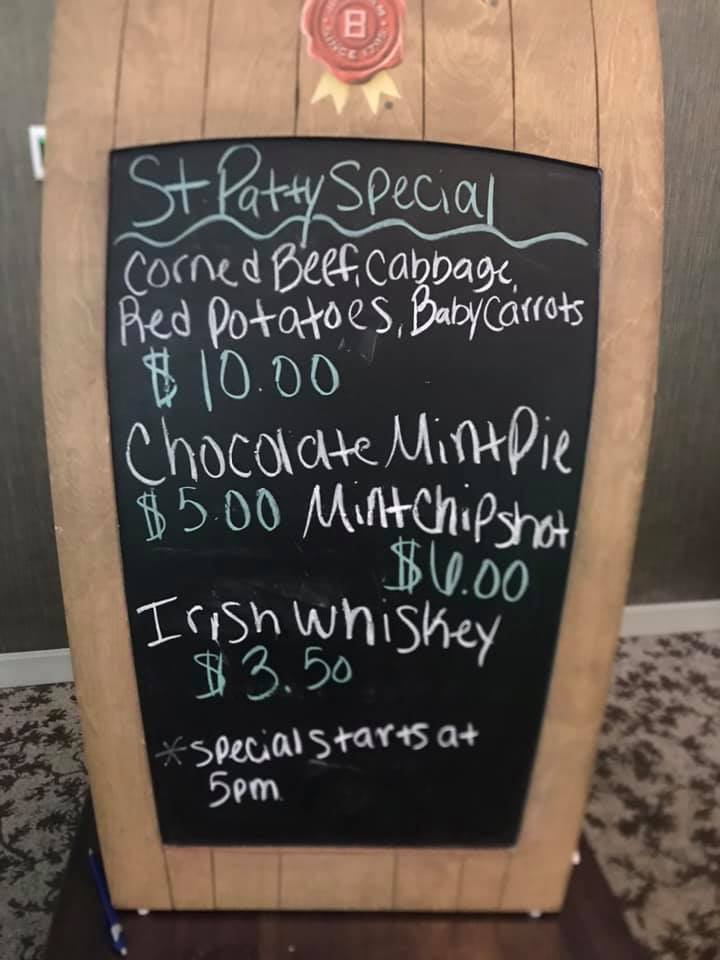 B
SINCE 1795
St. Patty Special
Corned Beef, Cabbage,
Red Potatoes, Baby Carrots
$10.00
Chocolate Mint Pie
$5.00 Mint Chip shot
$6.00
Irish Whiskey
$3.50
*special starts at
5pm